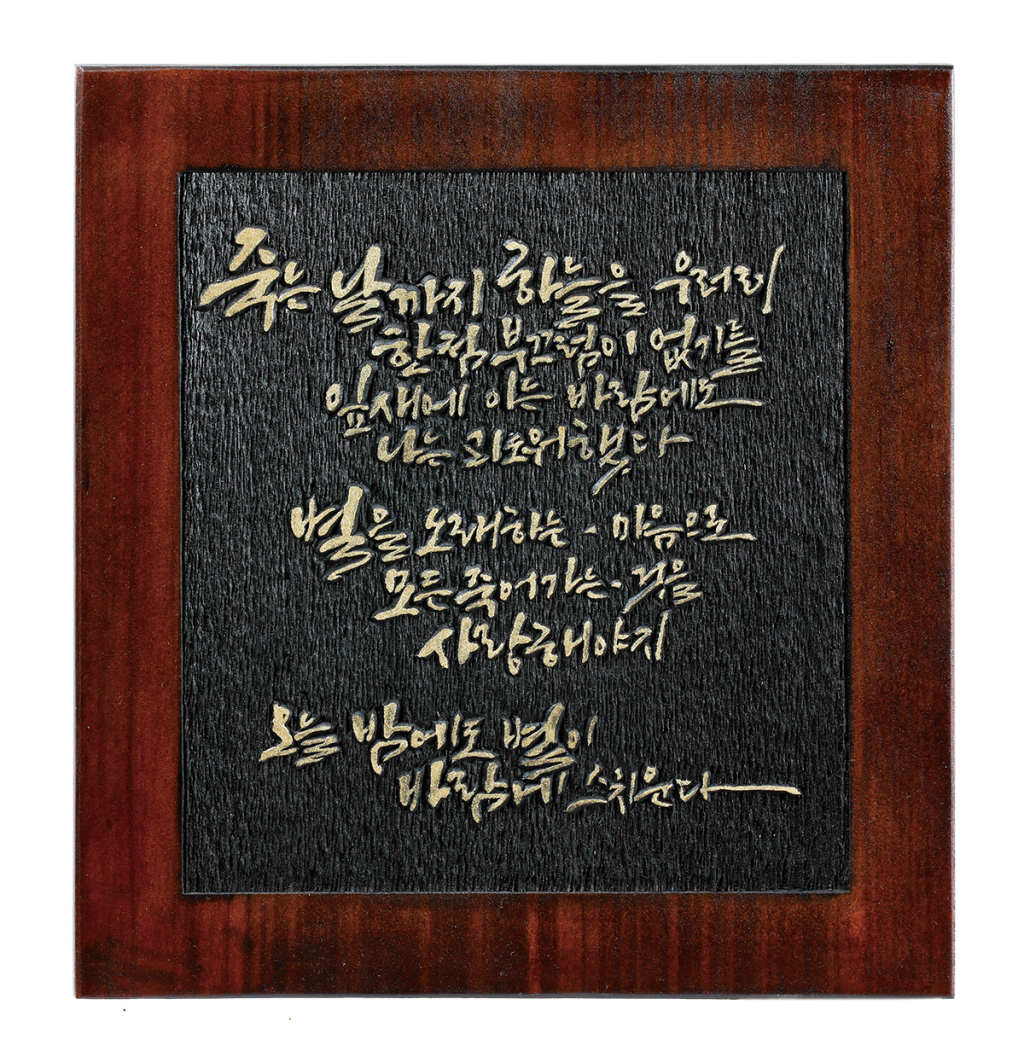 죽는 날까지 하늘을 우러러
한점 부끄럼이 없기를
잎새에 이는 바람에도
나는 괴로워했다
별을 노래하는 마음으로
모든 죽어가는 것을
사랑해야지
오늘 밤에도 별이
바람에 스치운다